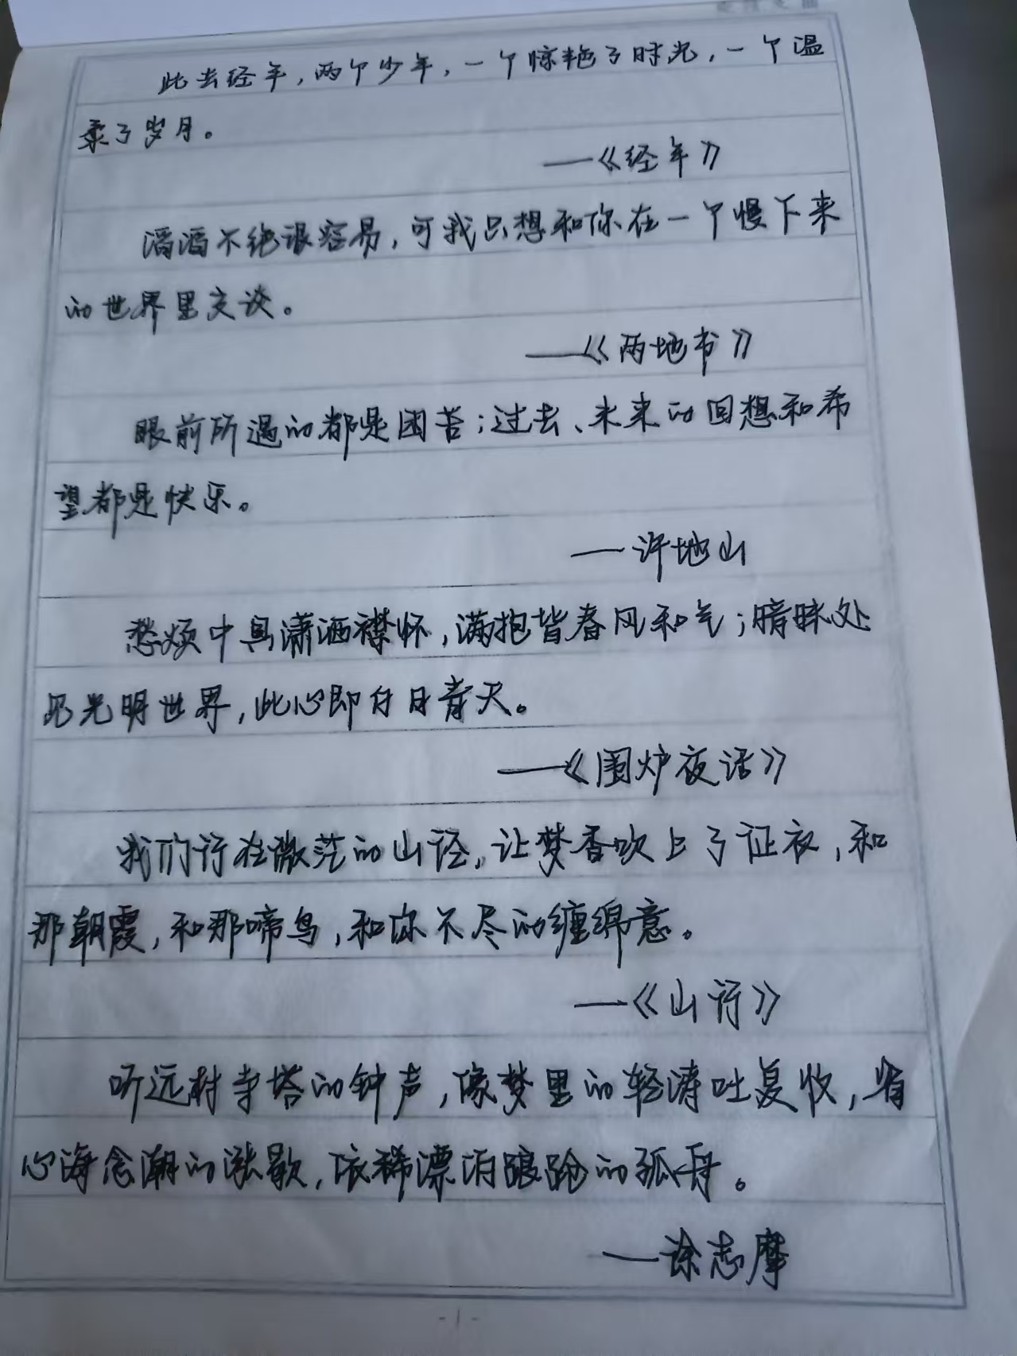 此去经年，两个少年，一个惊艳了时光，一个温
柔了岁月。
——《经年》
滔滔不绝很容易，可我只想和你在一个慢下来
的世界里交谈。
——《两地书》
眼前所遇的都是困苦；过去、未来的回想和希
望都是快乐。
——许地山
愁烦中具潇洒襟怀，满抱皆春风和气；暗昧处
见光明世界，此心即白日青天。
——《围炉夜话》
我们行在微茫的山径，让梦香吹上了征衣，和
那朝霞，和那啼鸟，和你不尽的缠绵意。
——《山行》
听远村寺塔的钟声，像梦里的轻涛吐复收，省
心海念潮的涨歇，依稀漂泊踉跄的孤舟。
——徐志摩
-1-